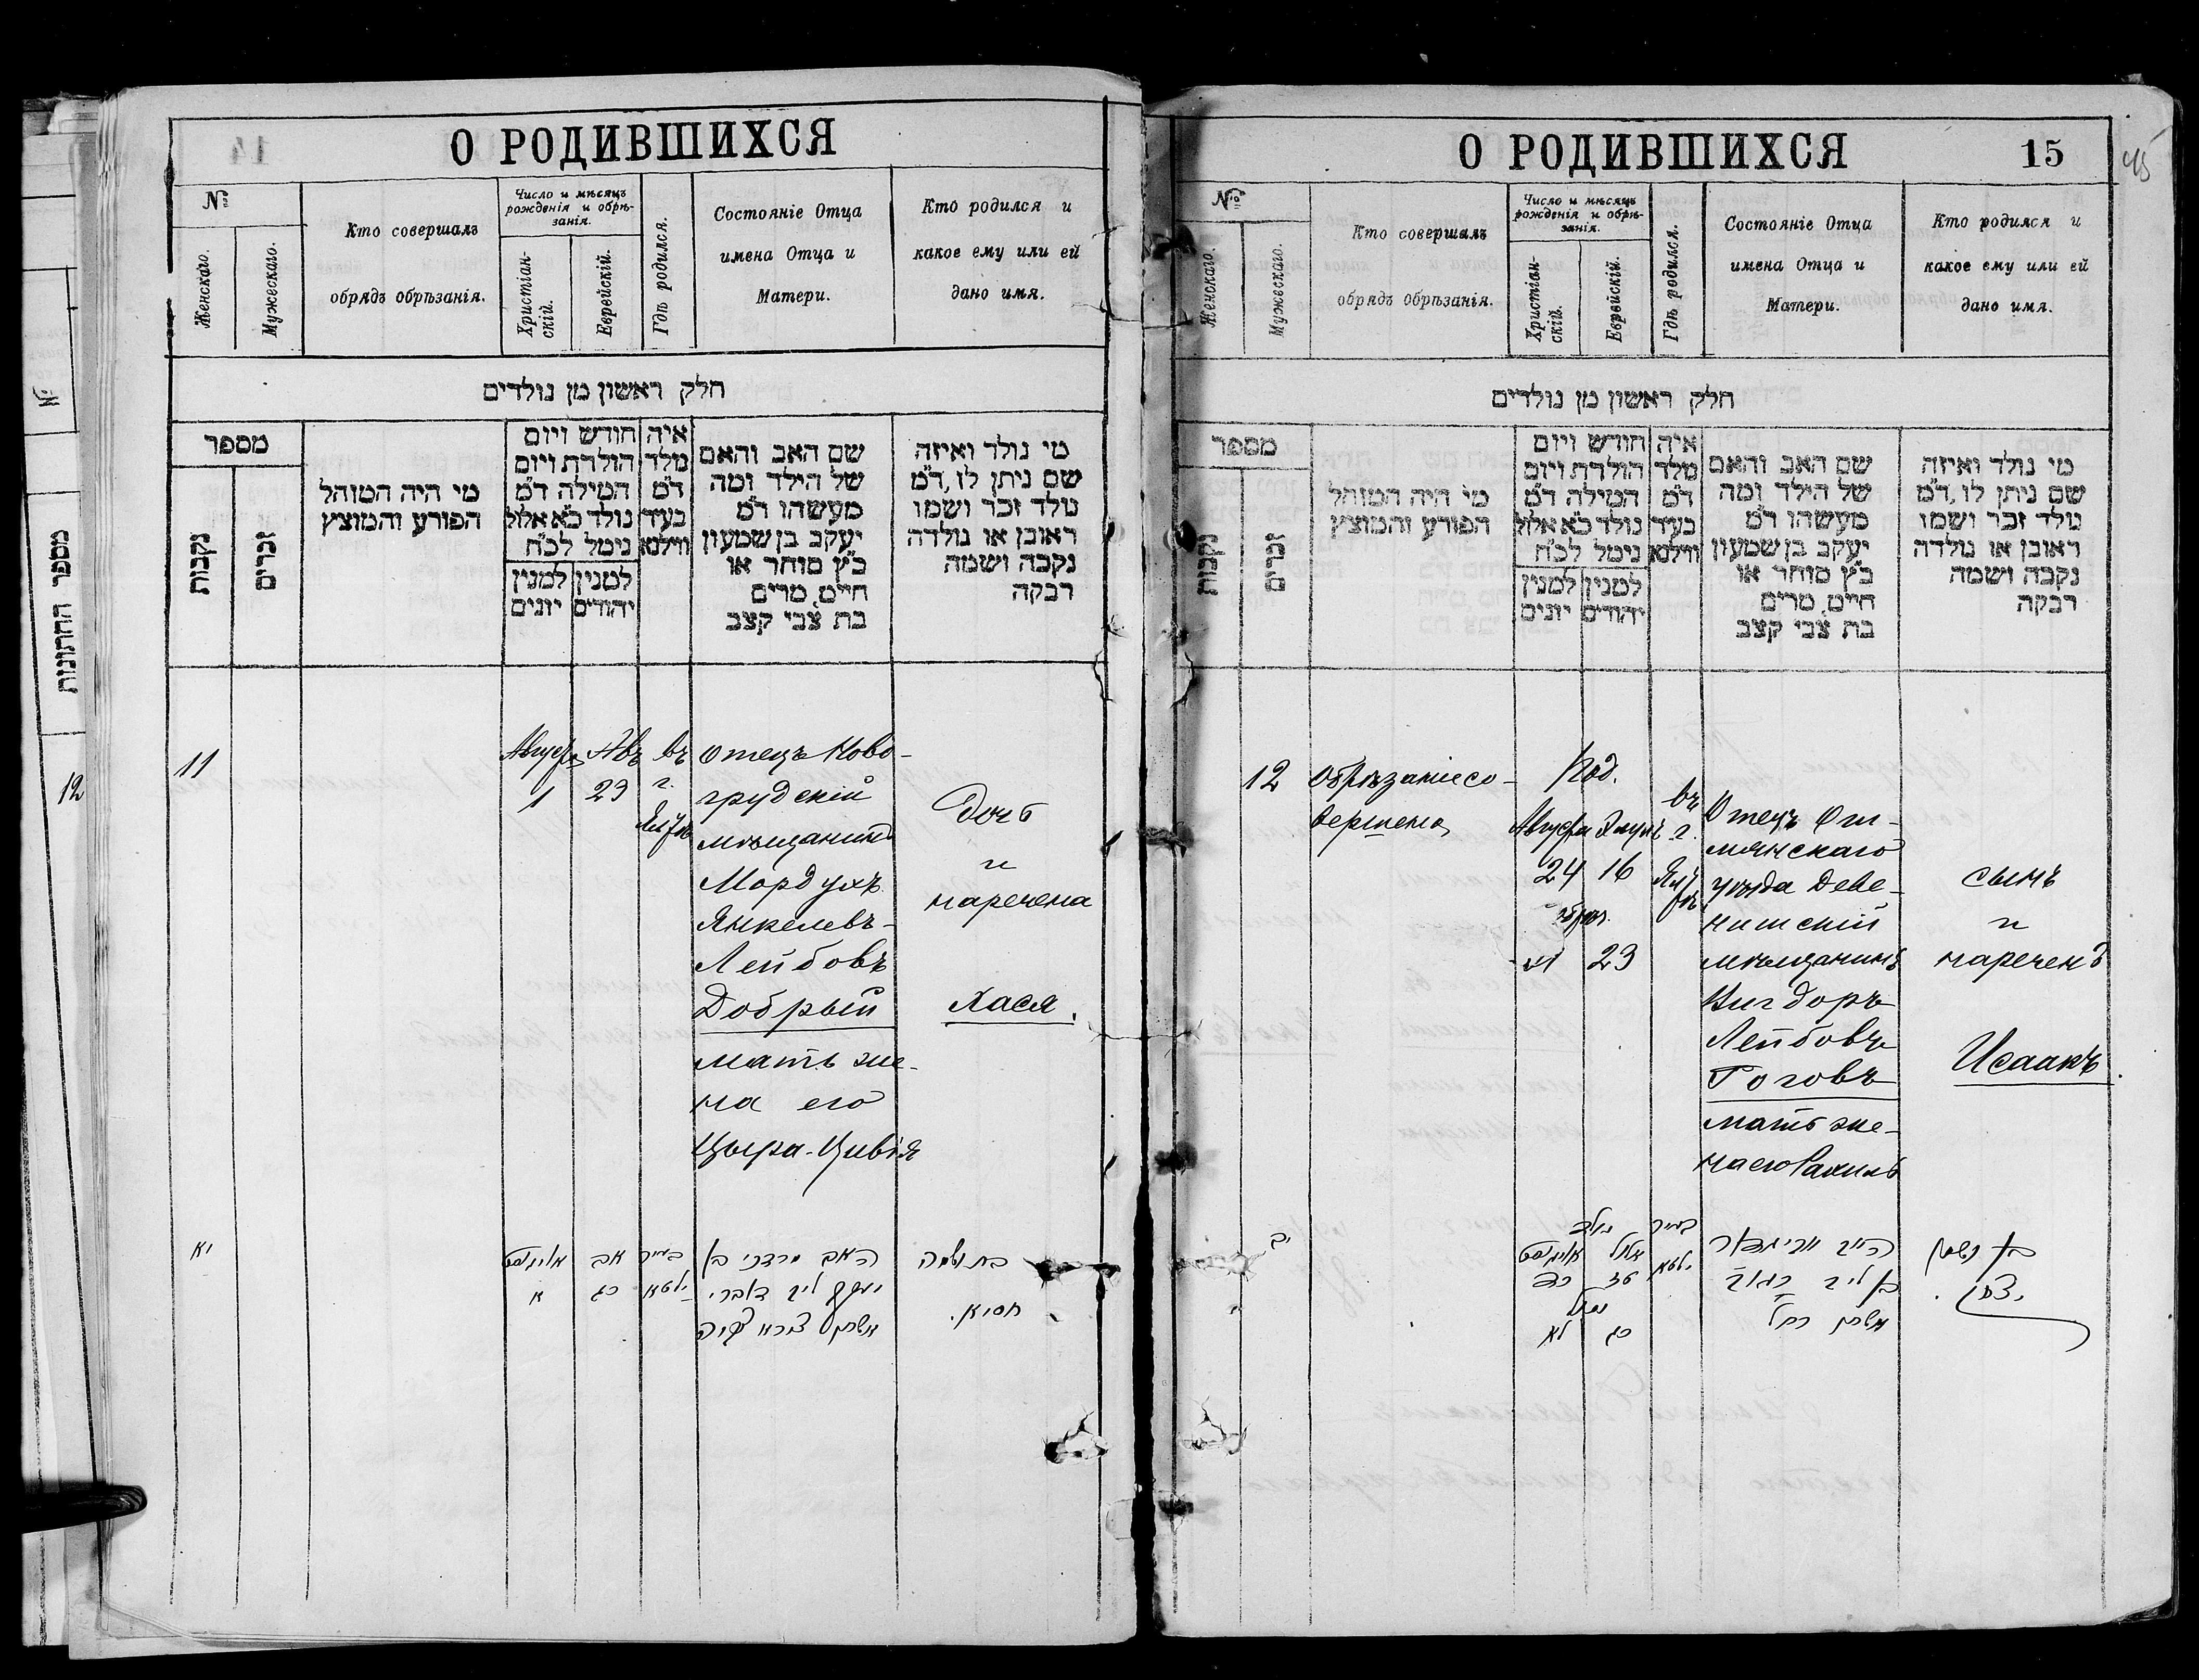 О РОДИВШИХСЯ
№
Женскаго.
Мужескаго.
Кто совершалъ
обрядъ обрѣзанія.
Число и мѣсяцъ
рожденія и обрѣ-
занія.
Христіан-
скій.
Еврейскій.
Гдѣ родился.
Состояніе Отца
имена Отца и
Матери.
Кто родился и
какое ему или ей
дано имя.
חלק ראשון מן נולדים
מספר
נקבות
זכרים
מי היה המוהל
הפורע והמוצץ
חודש ויום
הולדת ויום
המילה ד״מ
נולד כ״א אלול
נימל לכ״ח
למנין
יהודים
למנין
יונים
איה
מלד
ד״מ
בעיד
ווילנא
שם האב והאם
של הילד ומה
מעשהו ד״מ
יעקב בן שמעון
כ״ץ סוחר או
חייט, מרים
בת צבי קצב
מי נולד ואיזה
שם ניתן לו, ד״מ
נולד זכר ושמו
ראובן או נולדה
נקבה ושמה
רבקה
11
Август
1
Авъ
23
въ
г.
отецъ Ново-
грудскій
мѣщанинъ
Мордухъ
Янкелевъ-
Лейбовъ
Добрый
мать же-
на его
Цыра-Цивія
Дочь
и
наречена
Хася.
יא
אויגוסט
א
אב
כג
בעיר
ילטא
האב מרדכי בן
יעקב ליב דאברי
אשתו צירא צביה
בת ושמה
חסיא.
מספר החתונות
12
О РОДИВШИХСЯ
15
45
№
Женскаго.
Мужескаго.
Кто совершалъ
обрядъ обрѣзанія.
Число и мѣсяцъ
рожденія и обрѣ-
занія.
Христіан-
скій.
Еврейскій.
Гдѣ родился.
Состояніе Отца
имена Отца и
Матери.
Кто родился и
какое ему или ей
дано имя.
חלק ראשון מן נולדים
מספר
נקבות
זכרים
מי היה המוהל
הפורע והמוצץ
חודש ויום
הולדת ויום
המילה ד״מ
נולד כ״א אלול
נימל לכ״ח
למנין
יהודים
למנין
יונים
איה
מלד
ד״מ
בעיד
ווילנא
שם האב והאם
של הילד ומה
מעשהו ד״מ
יעקב בן שמעון
כ״ץ סוחר או
חייט, מרים
בת צבי קצב
מי נולד ואיזה
שם ניתן לו, ד״מ
נולד זכר ושמו
ראובן או נולדה
נקבה ושמה
רבקה
12
обрѣзаніе со-
вершено
Род.
Августа
24
Элулъ
16
обрѣз.
31
23
въ
г.
Отецъ Ош-
мянскаго
уѣзда Деве-
нишскій
мѣщанинъ
Вигдоръ
Лейбовъ
Гоговъ
мать же-
на его Рахиль
сынъ
и
нареченъ
Исаакъ.
יב
נולד
אויגוסט
כד
אלול
טז
נימול
לא
כג
בעיר
ילטא
האב וויגדאר
בן ליב
אשתו רחל
בן ושמו
יצחק.